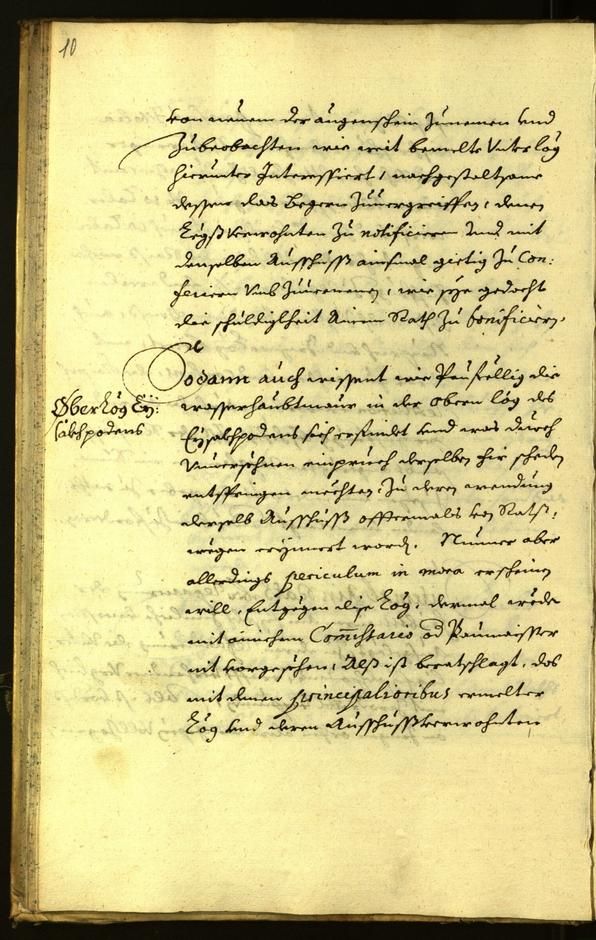 10
von neuem der augenschein zunemen und
zubeobachten wie weit bemelte Unter Lög
hierunter Interessiert, nachgestaltsame
dessen das Begern zuuergreiffen, denen
Lögsverwohnten zu notificieren und mit
denselben Ausschuss ainsmal güetig zu Con:
ferieren unnd zuuernemen, wie sye gedacht
die schuldigkheit Ainem Rath zu bonificiern.
Sodann auch wissent wie Paufellig die
wasserhaubtmaur in der obern Lög des
Eysakhpodens sich erfindet und was durch
einpruch derselben für scheden
entspringen möchten, zu deren wendung
derselb Ausschuss offtermales von Raths:
wegen erjnnert worden. Nunmer aber
allerdings periculum in mora erscheinen
will, Entgegen dise Lög, dermal weder
mit ainichem Commissario od Paumaister
nit vorgesehen, Alss ist beratschlagt, das
mit denen principalioribus ermelter
Lög und deren Ausschussverwohnten
Ober Lög Ey:
sakhpodens